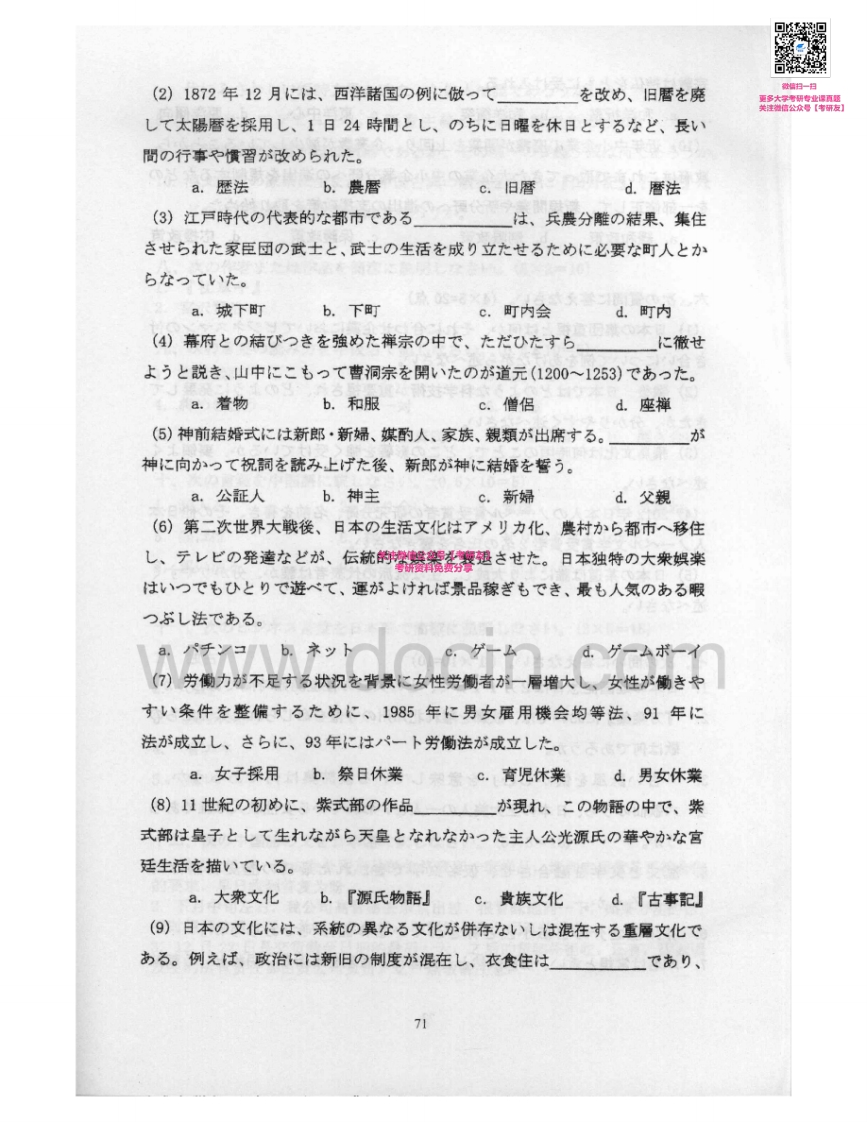 微信扫一扫
更多大学考研专业课真题
关注微信公众号【考研友】
(2) 1872 年 12 月には、西洋諸国の例に倣って________を改め、旧暦を廃
して太陽暦を採用し、1 日 24 時間とし、のちに日曜を休日とするなど、長い
間の行事や慣習が改められた。
a. 歴法 b. 農暦 c. 旧暦 d. 暦法
(3) 江戸時代の代表的な都市である________は、兵農分離の結果、集住
させられた家臣団の武士と、武士の生活を成り立たせるために必要な町人とか
らなっていた。
a. 城下町 b. 下町 c. 町内会 d. 町内
(4) 幕府との結びつきを強めた禅宗の中で、ただひたすら________に徹せ
ようと説き、山中にこもって曹洞宗を開いたのが道元(1200〜1253)であった。
a. 着物 b. 和服 c. 僧侶 d. 座禅
(5) 神前結婚式には新郎・新婦、媒酌人、家族、親類が出席する。________が
神に向かって祝詞を読み上げた後、新郎が神に結婚を誓う。
a. 公証人 b. 神主 c. 新婦 d. 父親
(6) 第二次世界大戦後、日本の生活文化はアメリカ化、農村から都市へ移住
し、テレビの発達などが、伝統的な娯楽を衰退させた。日本独特の大衆娯楽
考研资料免费分享
はいつでもひとりで遊べて、運がよければ景品稼ぎもでき、最も人気のある暇
つぶし法である。
a. パチンコ b. ネット c. ゲーム d. ゲームボーイ
www.docin.com
(7) 労働力が不足する状況を背景に女性労働者が一層増大し、女性が働きや
すい条件を整備するために、1985 年に男女雇用機会均等法、91 年に
法が成立し、さらに、93 年にはパート労働法が成立した。
a. 女子採用 b. 祭日休業 c. 育児休業 d. 男女休業
(8) 11 世紀の初めに、紫式部の作品________が現れ、この物語の中で、紫
式部は皇子として生れながら天皇となれなかった主人公光源氏の華やかな宮
廷生活を描いている。
a. 大衆文化 b. 『源氏物語』 c. 貴族文化 d. 『古事記』
(9) 日本の文化には、系統の異なる文化が併存ないしは混在する重層文化で
ある。例えば、政治には新旧の制度が混在し、衣食住は________であり、
71